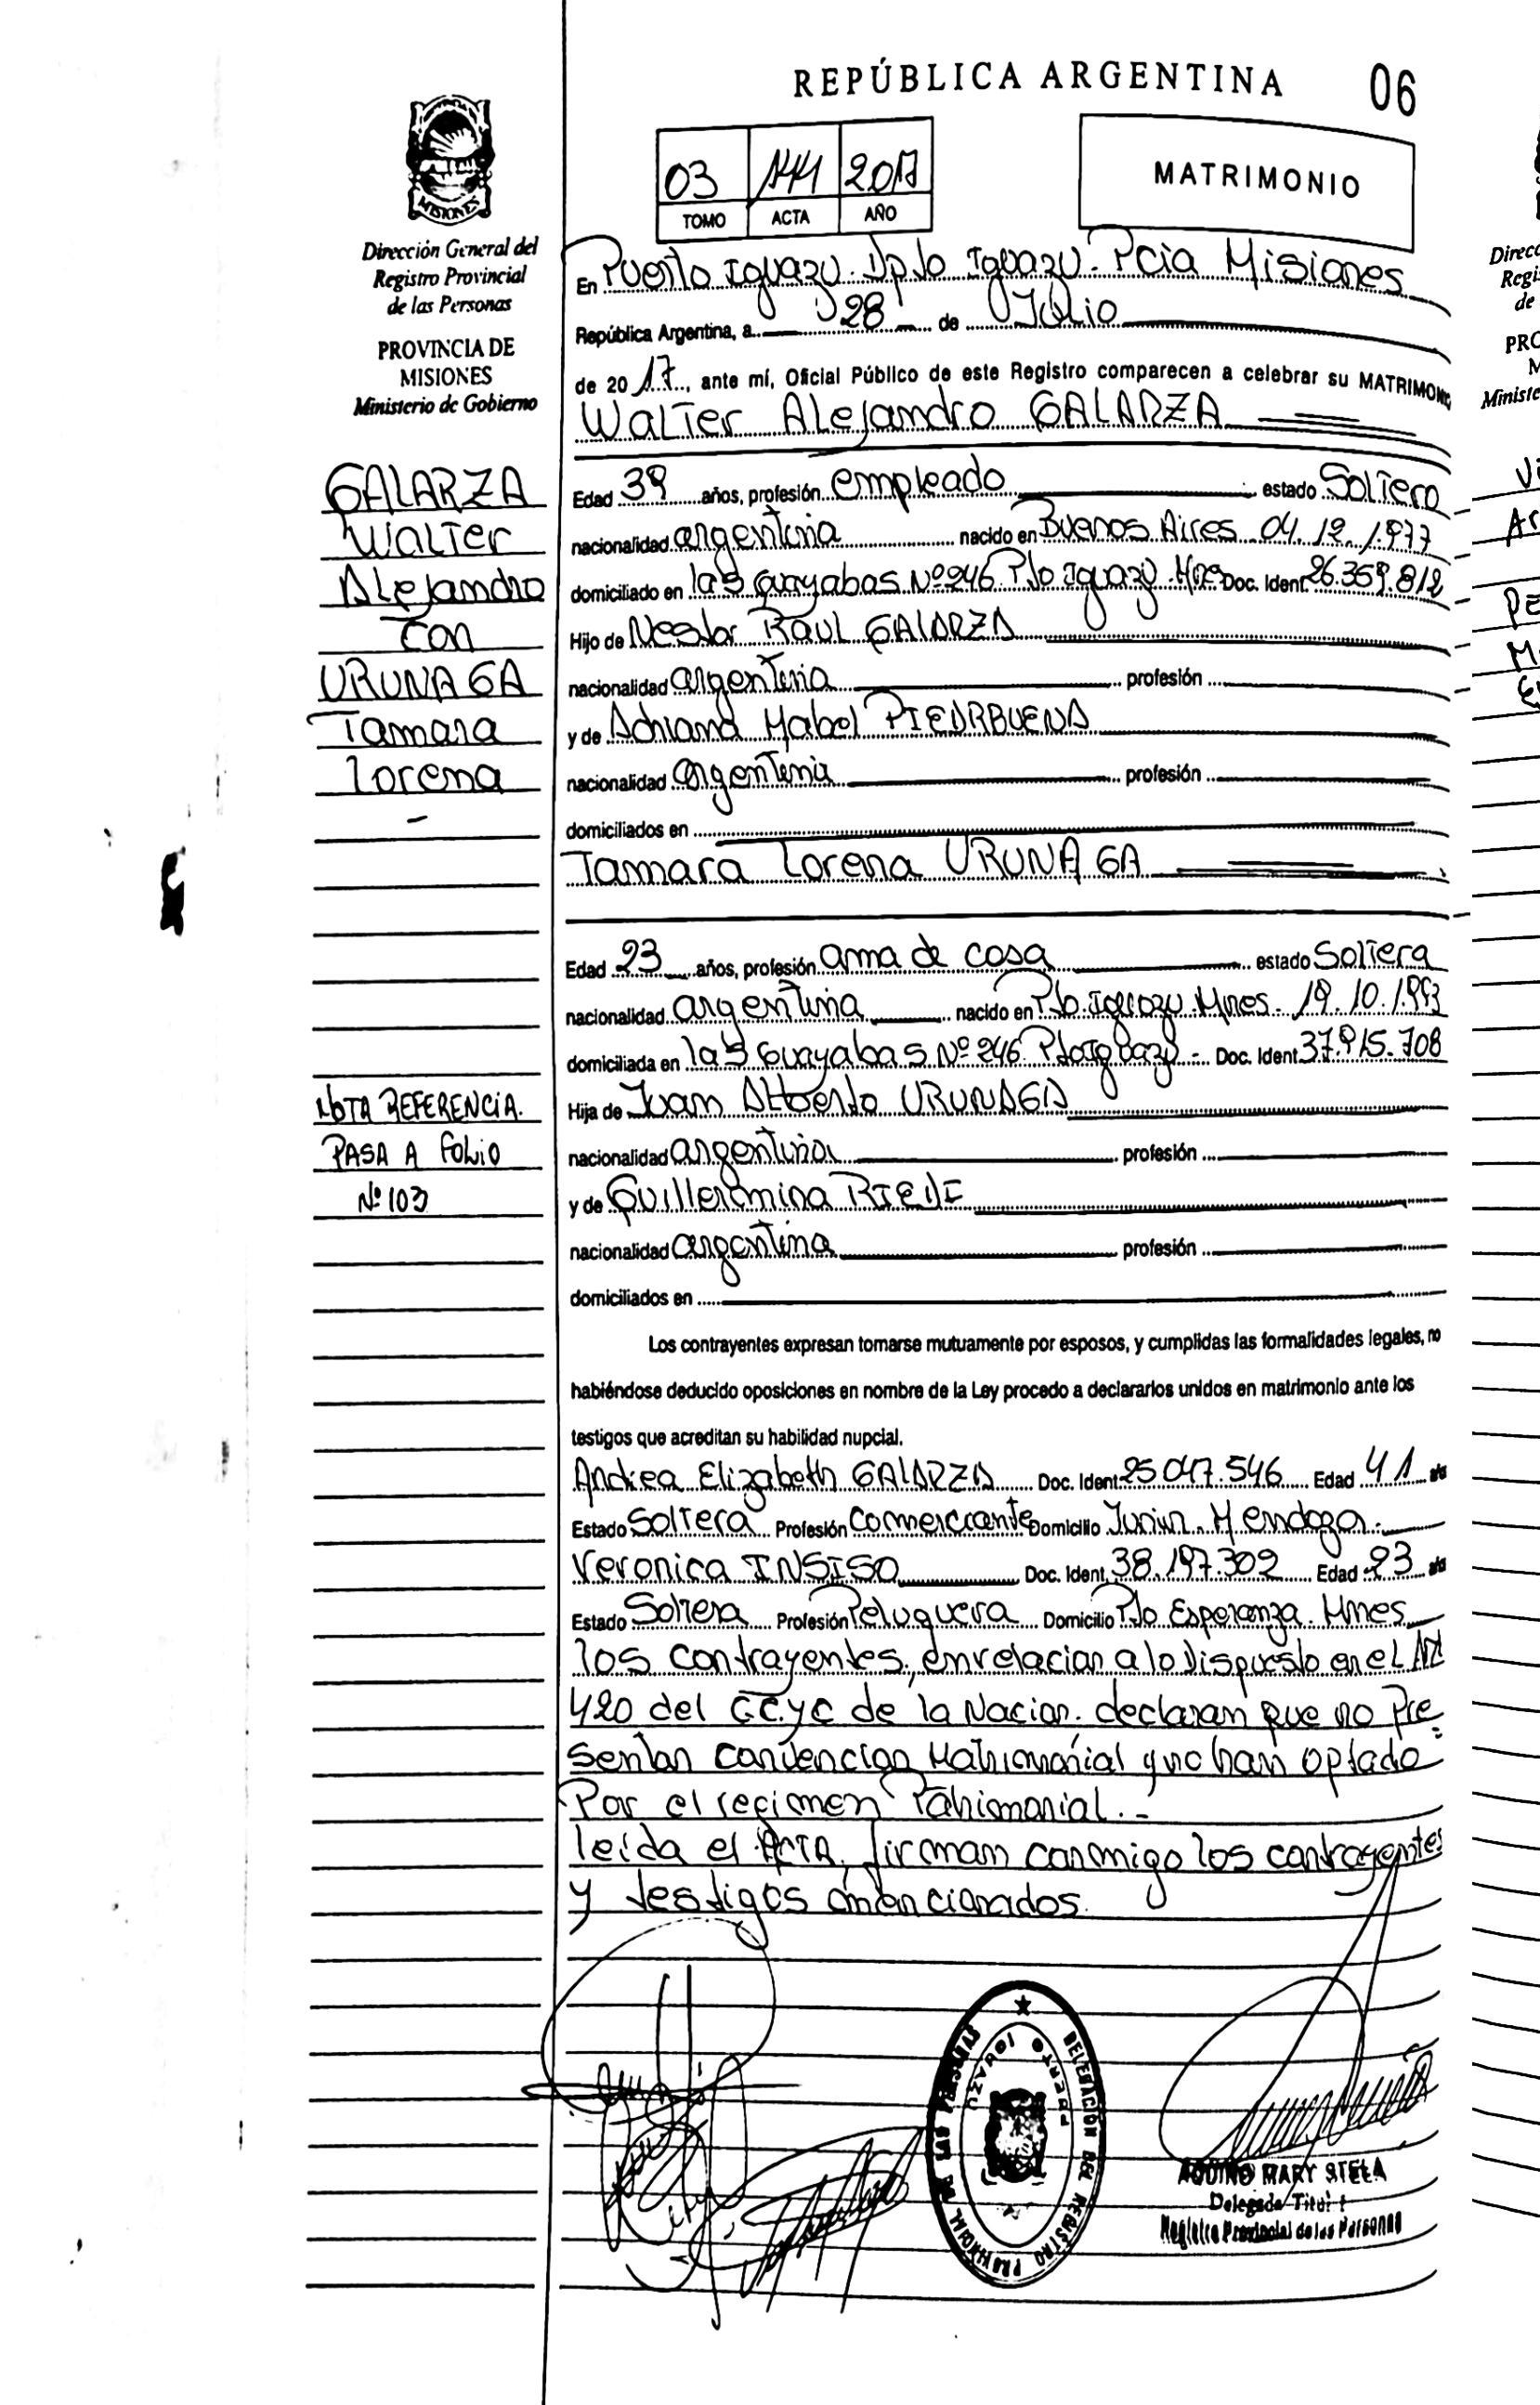 REPÚBLICA ARGENTINA 06
MATRIMONIO
03 2017
TOMO ACTA AÑO
MISIONES
Dirección General del
Registro Provincial
de las Personas
PROVINCIA DE
MISIONES
Ministerio de Gobierno
GALARZA
Walter
Alejandro
con
URUNAGA
Tamara
Lorena
NOTA REFERENCIA.
PASA A FOLIO
Nº 103
En Puerto Iguazu. Dpto Iguazu. Pcia Misiones
República Argentina, a 28 de Julio
de 20 17, ante mí, Oficial Público de este Registro comparecen a celebrar su MATRIMONIO
Walter Alejandro GALARZA
Edad 39 años, profesión empleado estado Soltero
nacionalidad argentina nacido en Buenos Aires 04.12.1.977
domiciliado en las guayabas Nº 246 Pto Iguazu Mnes Doc. Ident. 26.359.812
Hijo de Nestor Raul GALARZA
nacionalidad argentina profesión
y de Adriana Mabel PIEDRBUENA
nacionalidad argentina profesión
domiciliados en
Tamara Lorena URUNAGA
Edad 23 años, profesión ama de casa estado Soltera
nacionalidad argentina nacido en Pto Iguazu Mnes. 19.10.1.993
domiciliada en las Guayabas Nº 246 Pto Iguazu - Doc. Ident 37.915.708
Hija de Juan Alberto URUNAGA
nacionalidad argentina profesión
y de Guillermina
nacionalidad argentina profesión
domiciliados en
Los contrayentes expresan tomarse mutuamente por esposos, y cumplidas las formalidades legales, no
habiéndose deducido oposiciones en nombre de la Ley procedo a declararlos unidos en matrimonio ante los
testigos que acreditan su habilidad nupcial.
Andrea Elizabeth GALARZA Doc. Ident 25.047.546 Edad 41
Estado Soltera Profesión Comerciante Domicilio Junin. Mendoza.
Veronica INSISO Doc. Ident. 38.197.309 Edad 23
Estado Soltera Profesión Peluquera Domicilio Pto Esperanza. Mnes
los contrayentes, en relacion a lo dispuesto en el Art
420 del C.C.yC de la Nacion. declaran que no Pre=
sentan convencion Matrimonial y no han optado
Por el regimen Patrimonial.-
leida el ACTA, firman conmigo los contrayentes
y testigos mencionados.
DELEGACIÓN DEL REGISTRO PROVINCIAL DE LAS PERSONAS
PUERTO IGUAZU
AQUINO MARY STELA
Delegada Titul
Registro Provincial de las Personas